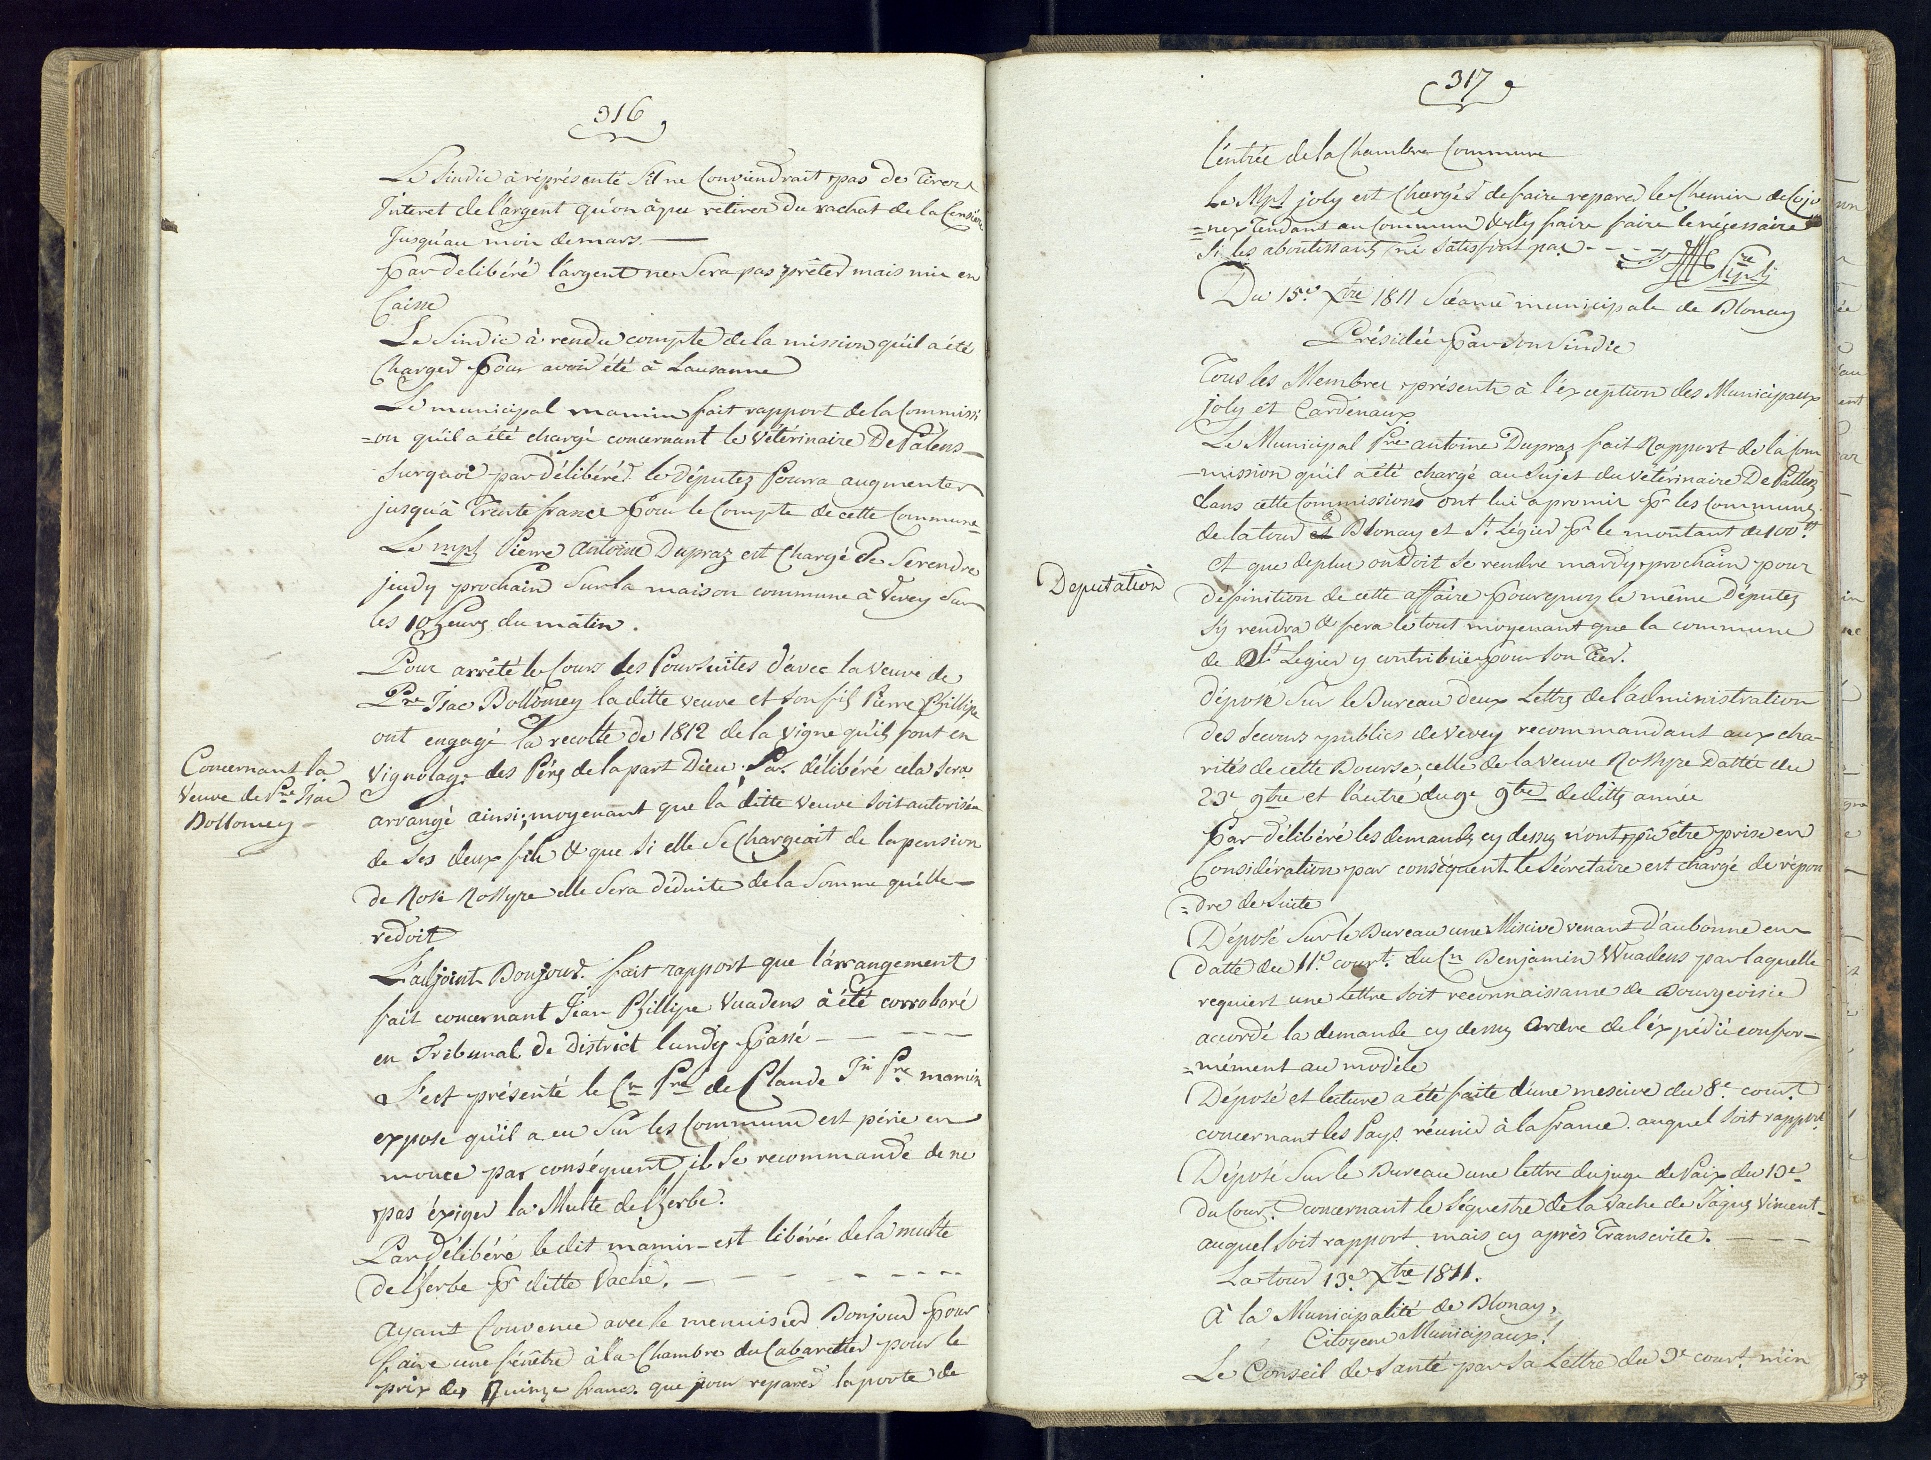 316
Le Sindic à réprésenté s'il ne Conviendrait pas de Tirer
Interet de l'argent qu'on à peu retirer du rachat de la Censière
Jusqu'au moir de mars.
Par deliberé l'argent ne Sera pas prêter mais mir en
Caisse
Le Sindic à rendu compte de la mission qu'il a été
Charger pour avoir été à Lausanne
Le municipal mamin fait rapport de la Commissi
=on qu'il a été chargé concernant le vétérinaire De Palens
surquoi par délibéré le députez pourra augmenter
jusqu'à Trente francs pour le Compte de cette Commune
Le mpl Pierre Antoine Dupraz est Chargé de Serendre
jeudy prochain Sur la maison commune à Vevey Sur
les 10 heures du matin.
Pour arrêté le Cours des Poursuites d'avec la Veuve de
Pre Isac Bottomey la ditte veuve et son fils Pierre Phillipe
ont engagé la recolte de 1812 de la Vigne qu'ils font en
Concernant la
Veuve de Pre Isac
Dollomey
Vignolage des Pérs de la part Dieu, Par délibéré cela sera
arrangé ainsi; moyenant que la ditte Veuve soit autorisée
de ses deux fils & que si elle Se Chargeait de la pension
de Rose Rossyre elle Sera déduite de la Somme qu'elle
redoit
L'adjoint Bonjour fait rapport que l'arrangement
fait concernant Jean Phillipe Vuadens à été corroboré
en Tribunal de District lundy passé
S'est présenté le Cn Pre de Claude Jn Pre mamin
expose qu'il a eu Sur les Commun est périe en
par conséquent, il Se recommande de ne
pas éxiger la Multe de l'herbe.
Par délibéré le dit mamin est libérér de la multe
de l'herbe pr ditte Vache.
Ayant Convenu avec le menuisier Bonjour pour
faire une fénêtre à la Chambre du Cabaretier pour le
prix de Quinze francs. que pour reparer la porte de
317
l'entrée de la Chambre Commune
Le Mpl joly est Chargér de faire reparer le Chemin de Cojo
=nex Tendant au Commun & d'y faire faire le nécessaire
Si les aboutissants ne satisfont pas
Du 15e Xbre 1811 Séance municipale de Blonay
Présidée par son Sindic
Tous les Membres présents à l'exception des Municipaux
joly et Cardenaux
Le Municipal Pre antoine Dupraz fait Rapport de la Com
mission qu'il a été chargé au Sujet du vétérinaire De Pallens
dans cette Commissions ont lui a promis pr les Communes
de la tour de Blonay et St Légier pr le montant de 100
et que de plus on doit se rendre mardy prochain pour
Deputation
définition de cette affaire pourquoy le même Députez
s'y rendra & fera le tout moyenant que la commune
de St Legier y contribue pour son tier.
déposé Sur le Bureau deux Lettres de l'administration
des Secours publics de Vevey recommandant aux cha-
rités de cette Bourse, celle de la Veuve Rossyre Dattée du
23e 9bre et l'autre du 9e 9bre de ditte année
Par délibéré les demandes cy dessus n'ont pû être prise en
Considération par conséquent le Sécretaire est chargé de répon
=dre de Suite
Déposé Sur le Bureau une Missive venant d'aubonne en
datte du 11e court. du Cn Benjamin Wuadens par laquelle
requiert une Lettre Soit reconnaissance de Bourgeoisie
accordé la demande cy dessus Ordre de l'éxpédié confor-
=mément au modèle
Déposé et lecture a été faite d'une mesive du 8e court.
concernant les Pays réunis à la france. auquel Soit rapport.
Déposé Sur le Bureau une lettre du juge de Paix du 13e
du Cour. concernant le Séquestre de la Vache de Jaques Viment
auquel Soit rapport mais cy après Transcrite.
La tour 13e Xbre 1811.
À la Municipalité de Blonay,
Citoyens Municipaux!
Le Conseil de Santé par Sa Lettre du 9e court. m'in